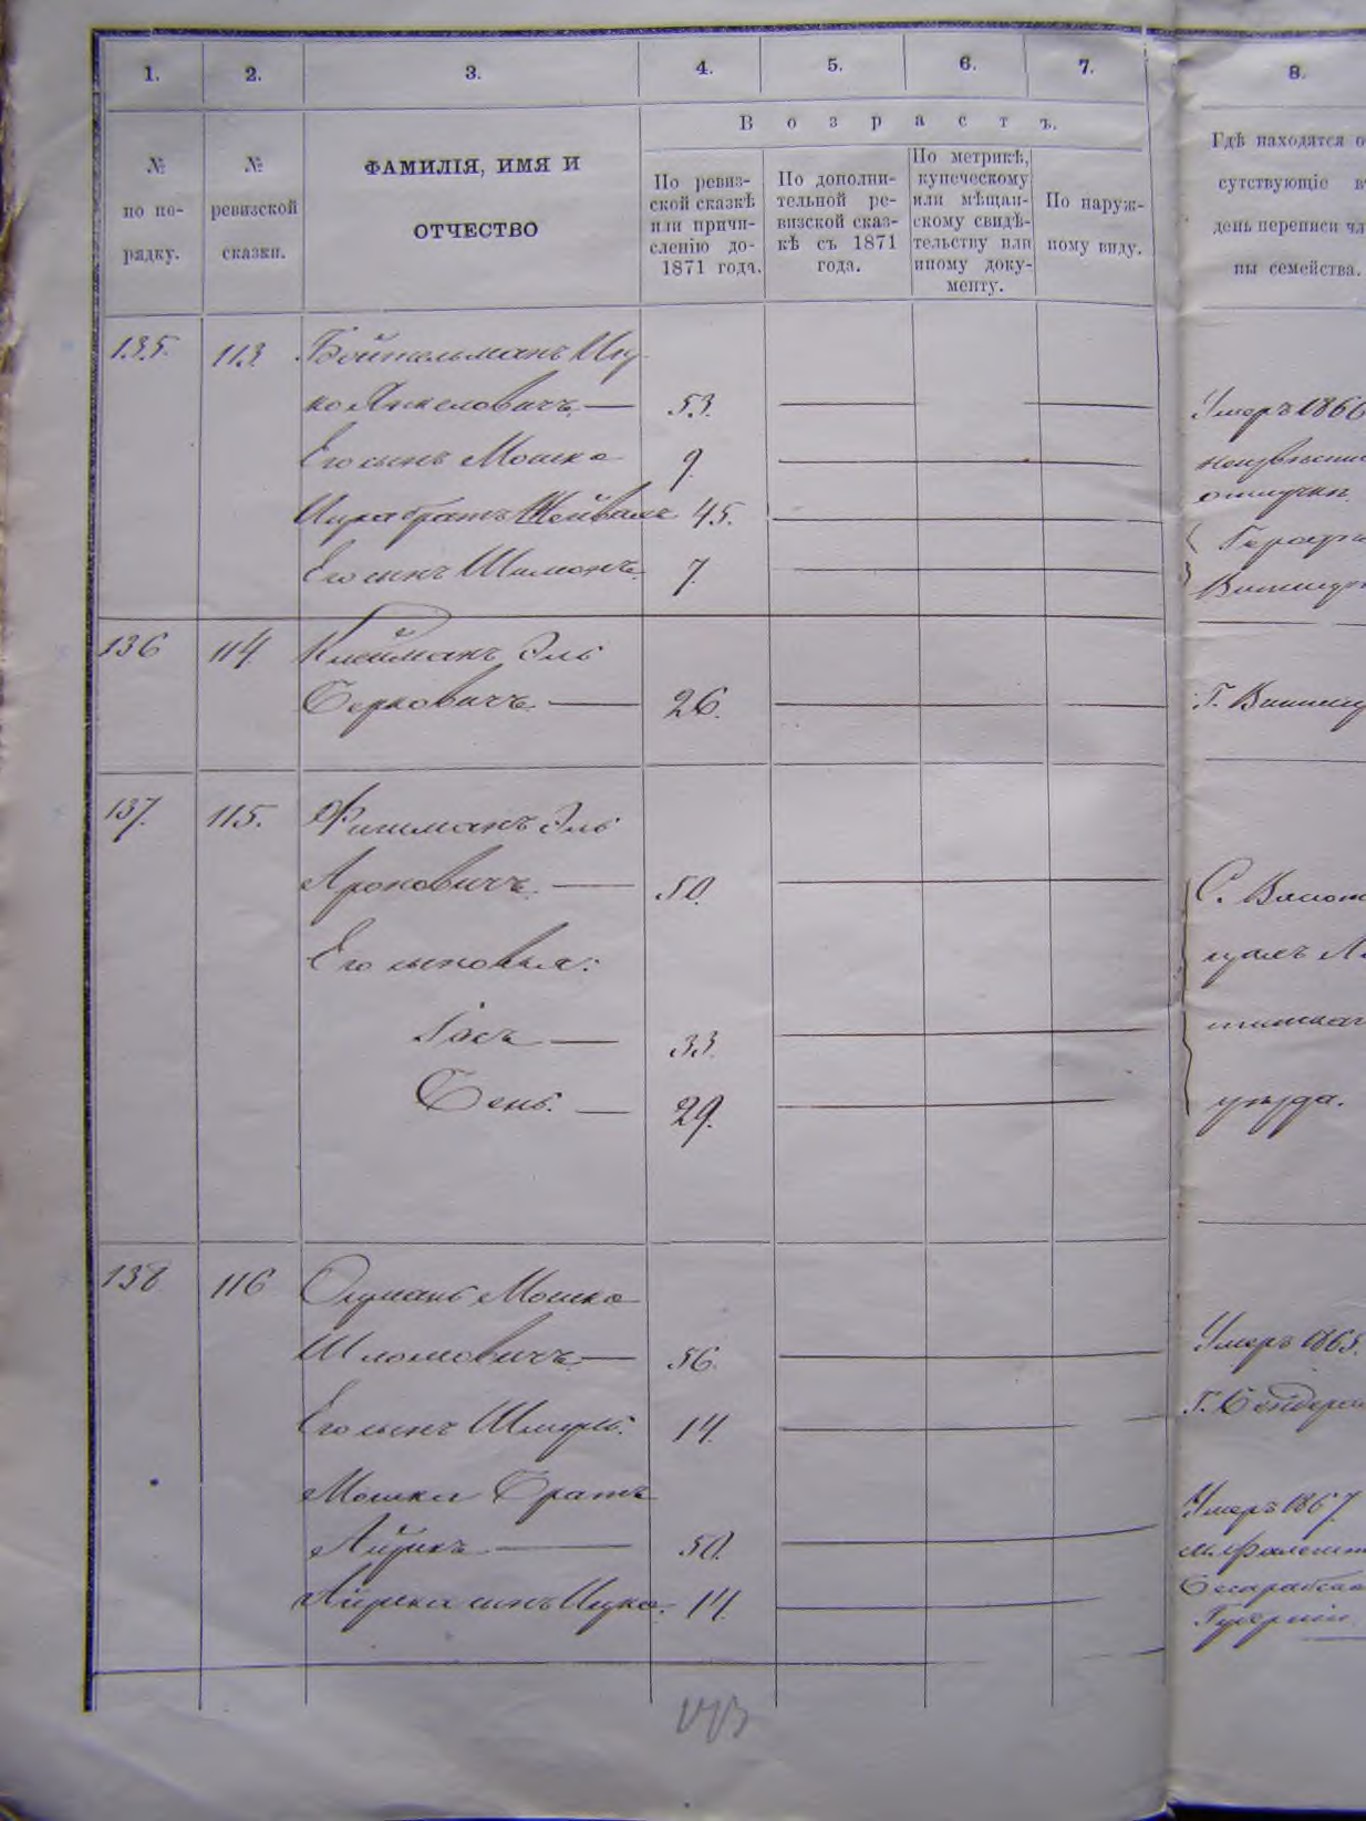 1. 2. 3. 4. 5. 6. 7. 8.
Возрастъ.
№
по по-
рядку.
№
ревизской
сказки.
ФАМИЛІЯ, ИМЯ И
ОТЧЕСТВО
По ревиз-
ской сказкѣ
или причи-
сленію до-
1871 года.
По дополни-
тельной ре-
визской сказ-
кѣ съ 1871
года.
По метрикѣ,
купеческому
или мѣщан-
скому свидѣ-
тельству или
иному доку-
менту.
По наруж-
ному виду.
Гдѣ находятся о
сутствующіе в
день переписи чл
ны семейства.
135. 113 Бойтельманъ Иц
ко Янкеловичъ — 53. Умеръ 1866
Его сынъ Мошко 9
отлучки.
Ицка братъ 45.
Его сынъ Шимонъ 7
136 114 Клейманъ Эль
Берковичъ — 26. Г.
137. 115. Фишманъ Эль
Ароновичъ — 50. С.
Его сыновья:
Іось — 33.
Бень. — 29. уѣзда.
138 116 Мошко
Шломовичъ — 56. Умеръ 1865.
Его сынъ 14. Г.
Мошки Братъ Умеръ 1867
Айзикъ — 50.
Айзика сынъ Ицко. 14. Губерніи